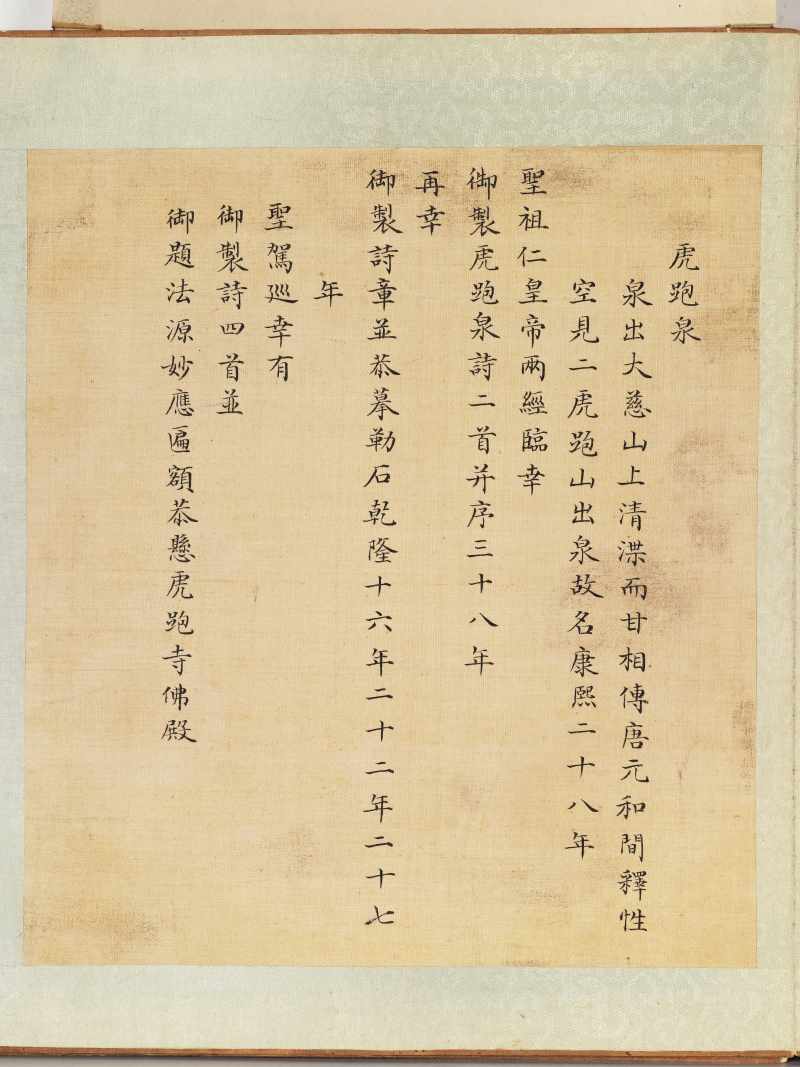 虎跑泉
泉出大慈山上清渫而甘相傳唐元和間釋性
空見二虎跑山出泉故名康熙二十八年
聖祖仁皇帝兩經臨幸
御製虎跑泉詩二首并序三十八年
再幸
御製詩章並恭摹勒石乾隆十六年二十二年二十七
年
聖駕廵幸有
御製詩四首並
御題法源妙應匾額恭懸虎跑寺佛殿